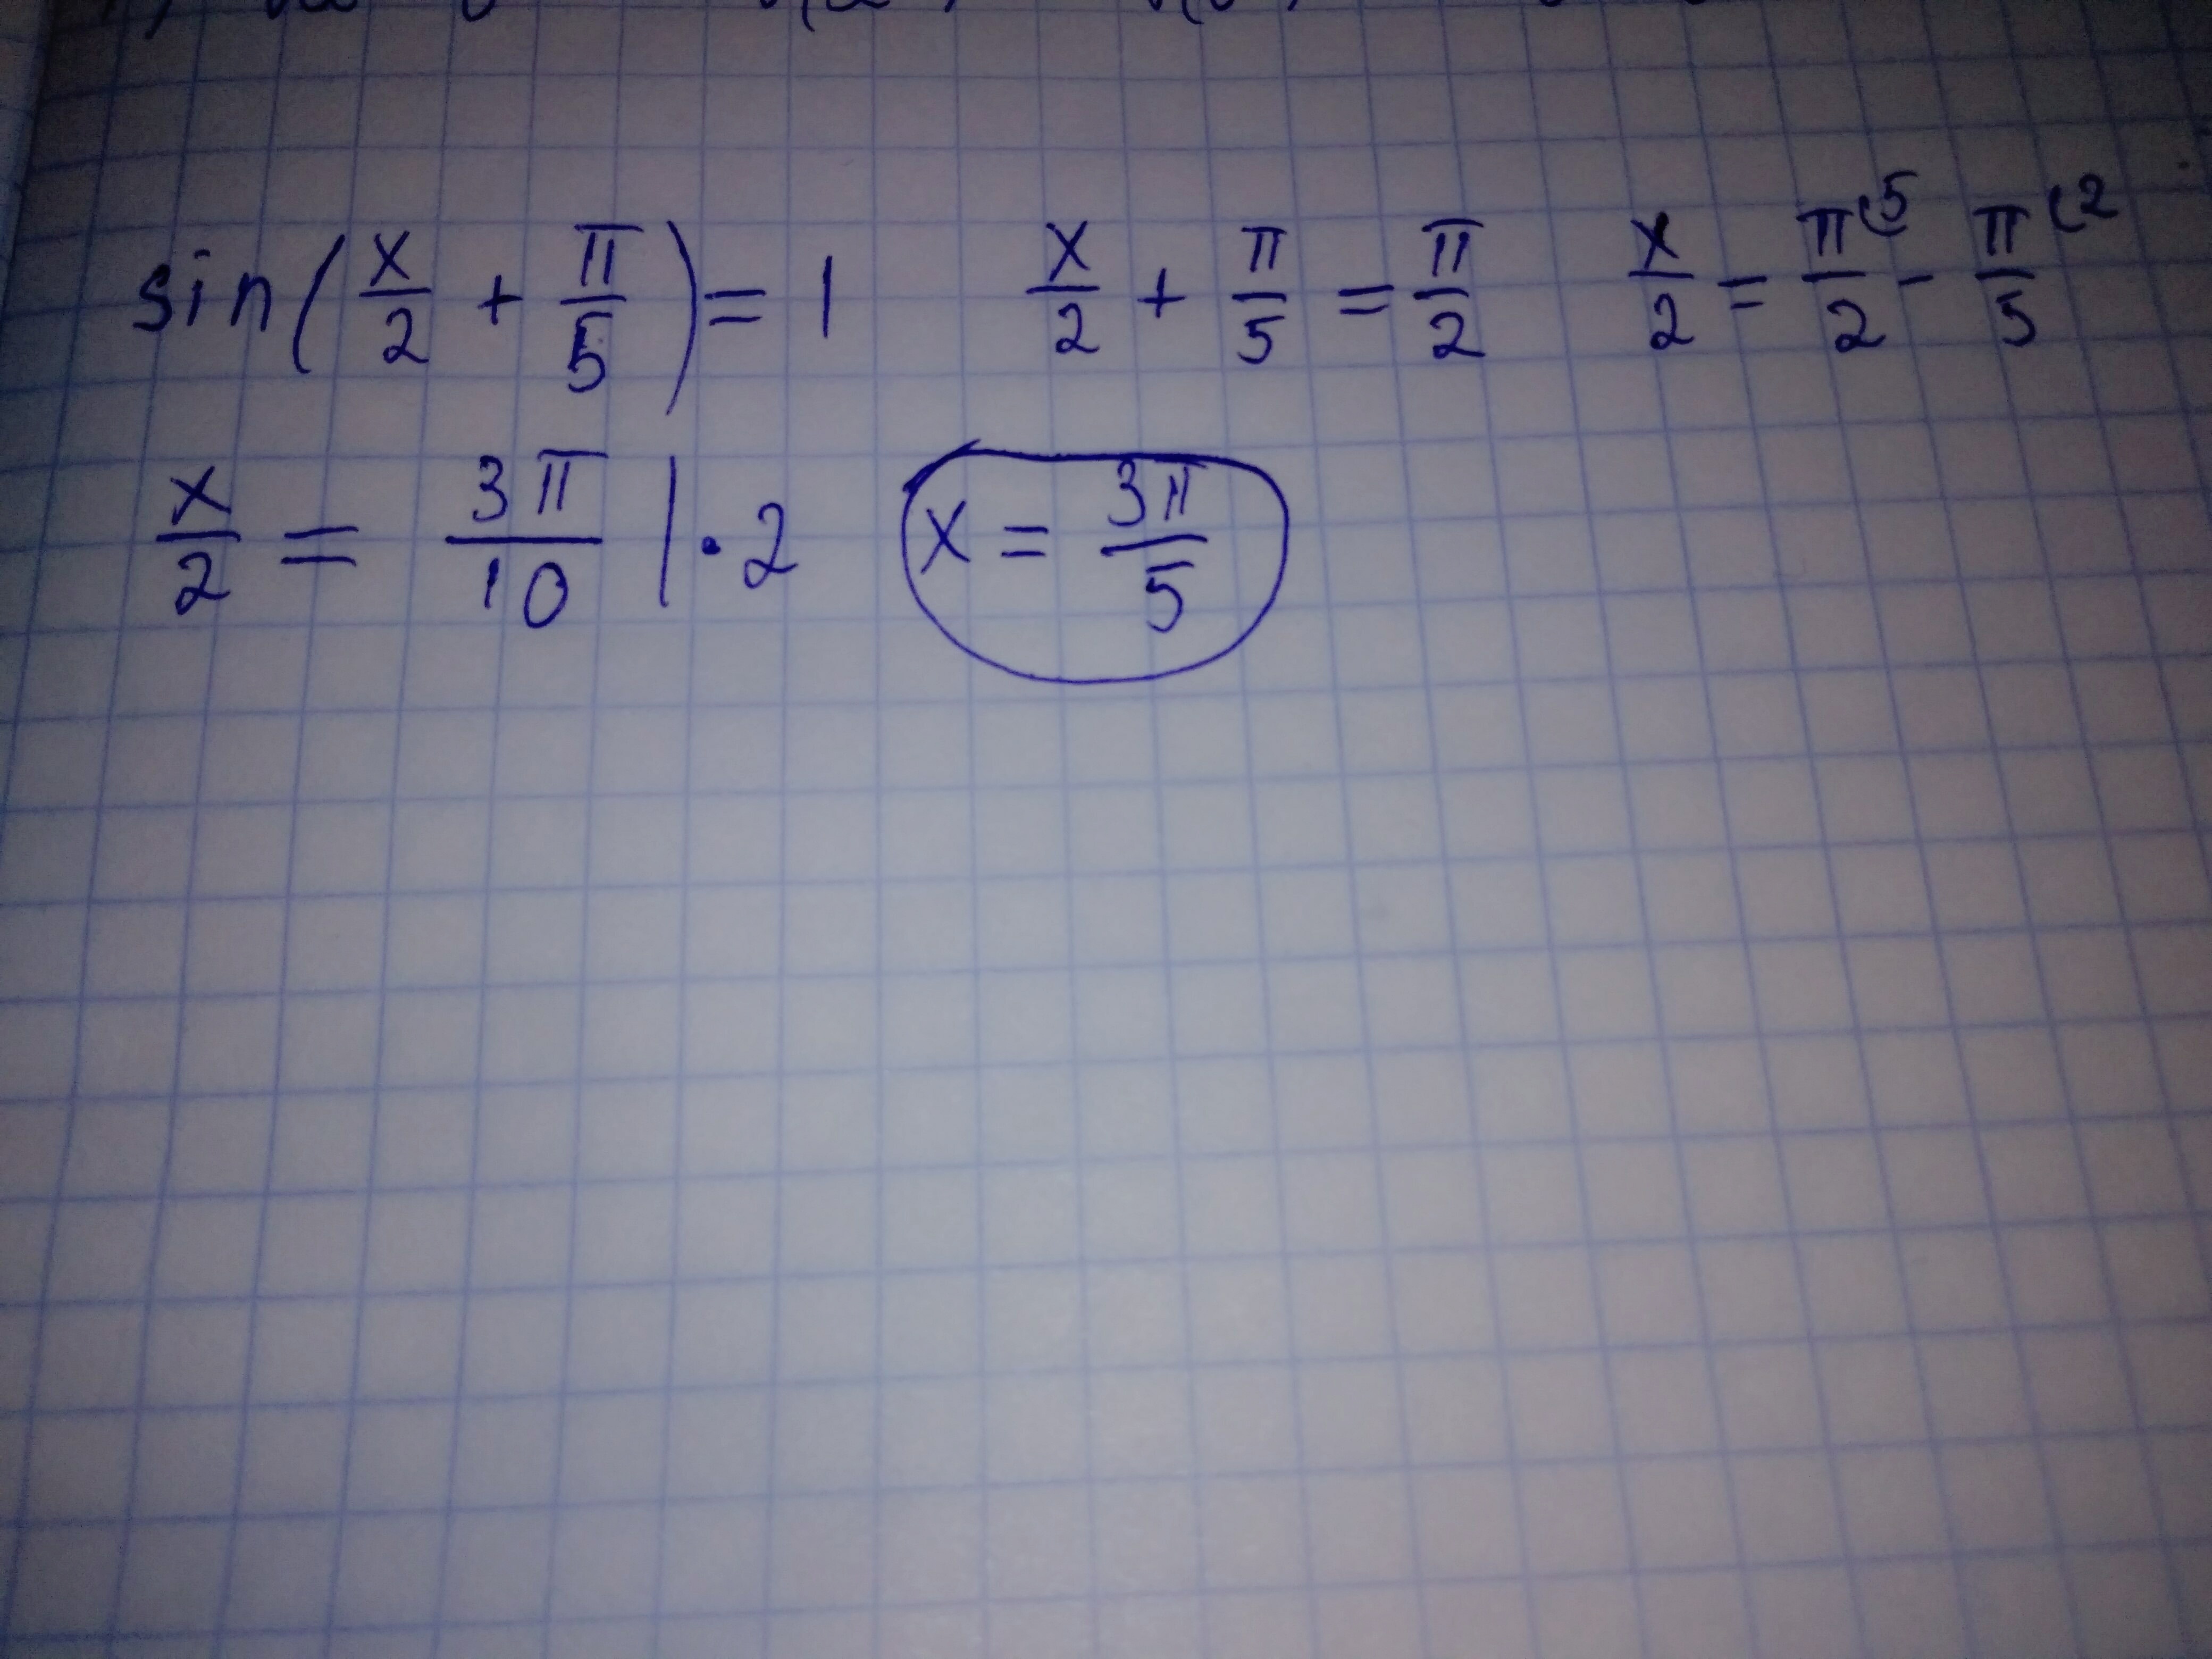 sin(x/2 + π/5) = 1 x/2 + π/5 = π/2 x/2 = π⁽⁵/2 - π⁽²/5
x/2 = 3π/10 | · 2 x = 3π/5